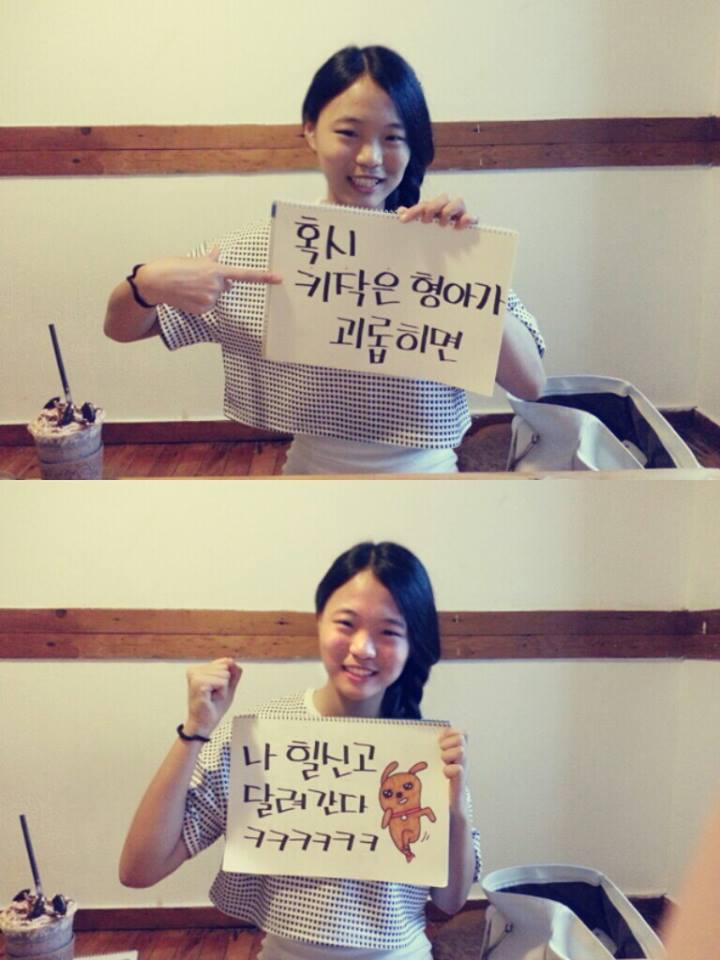 혹시
키작은 형아가
괴롭히면
나 힐신고
달려간다
ㅋㅋㅋㅋㅋㅋ